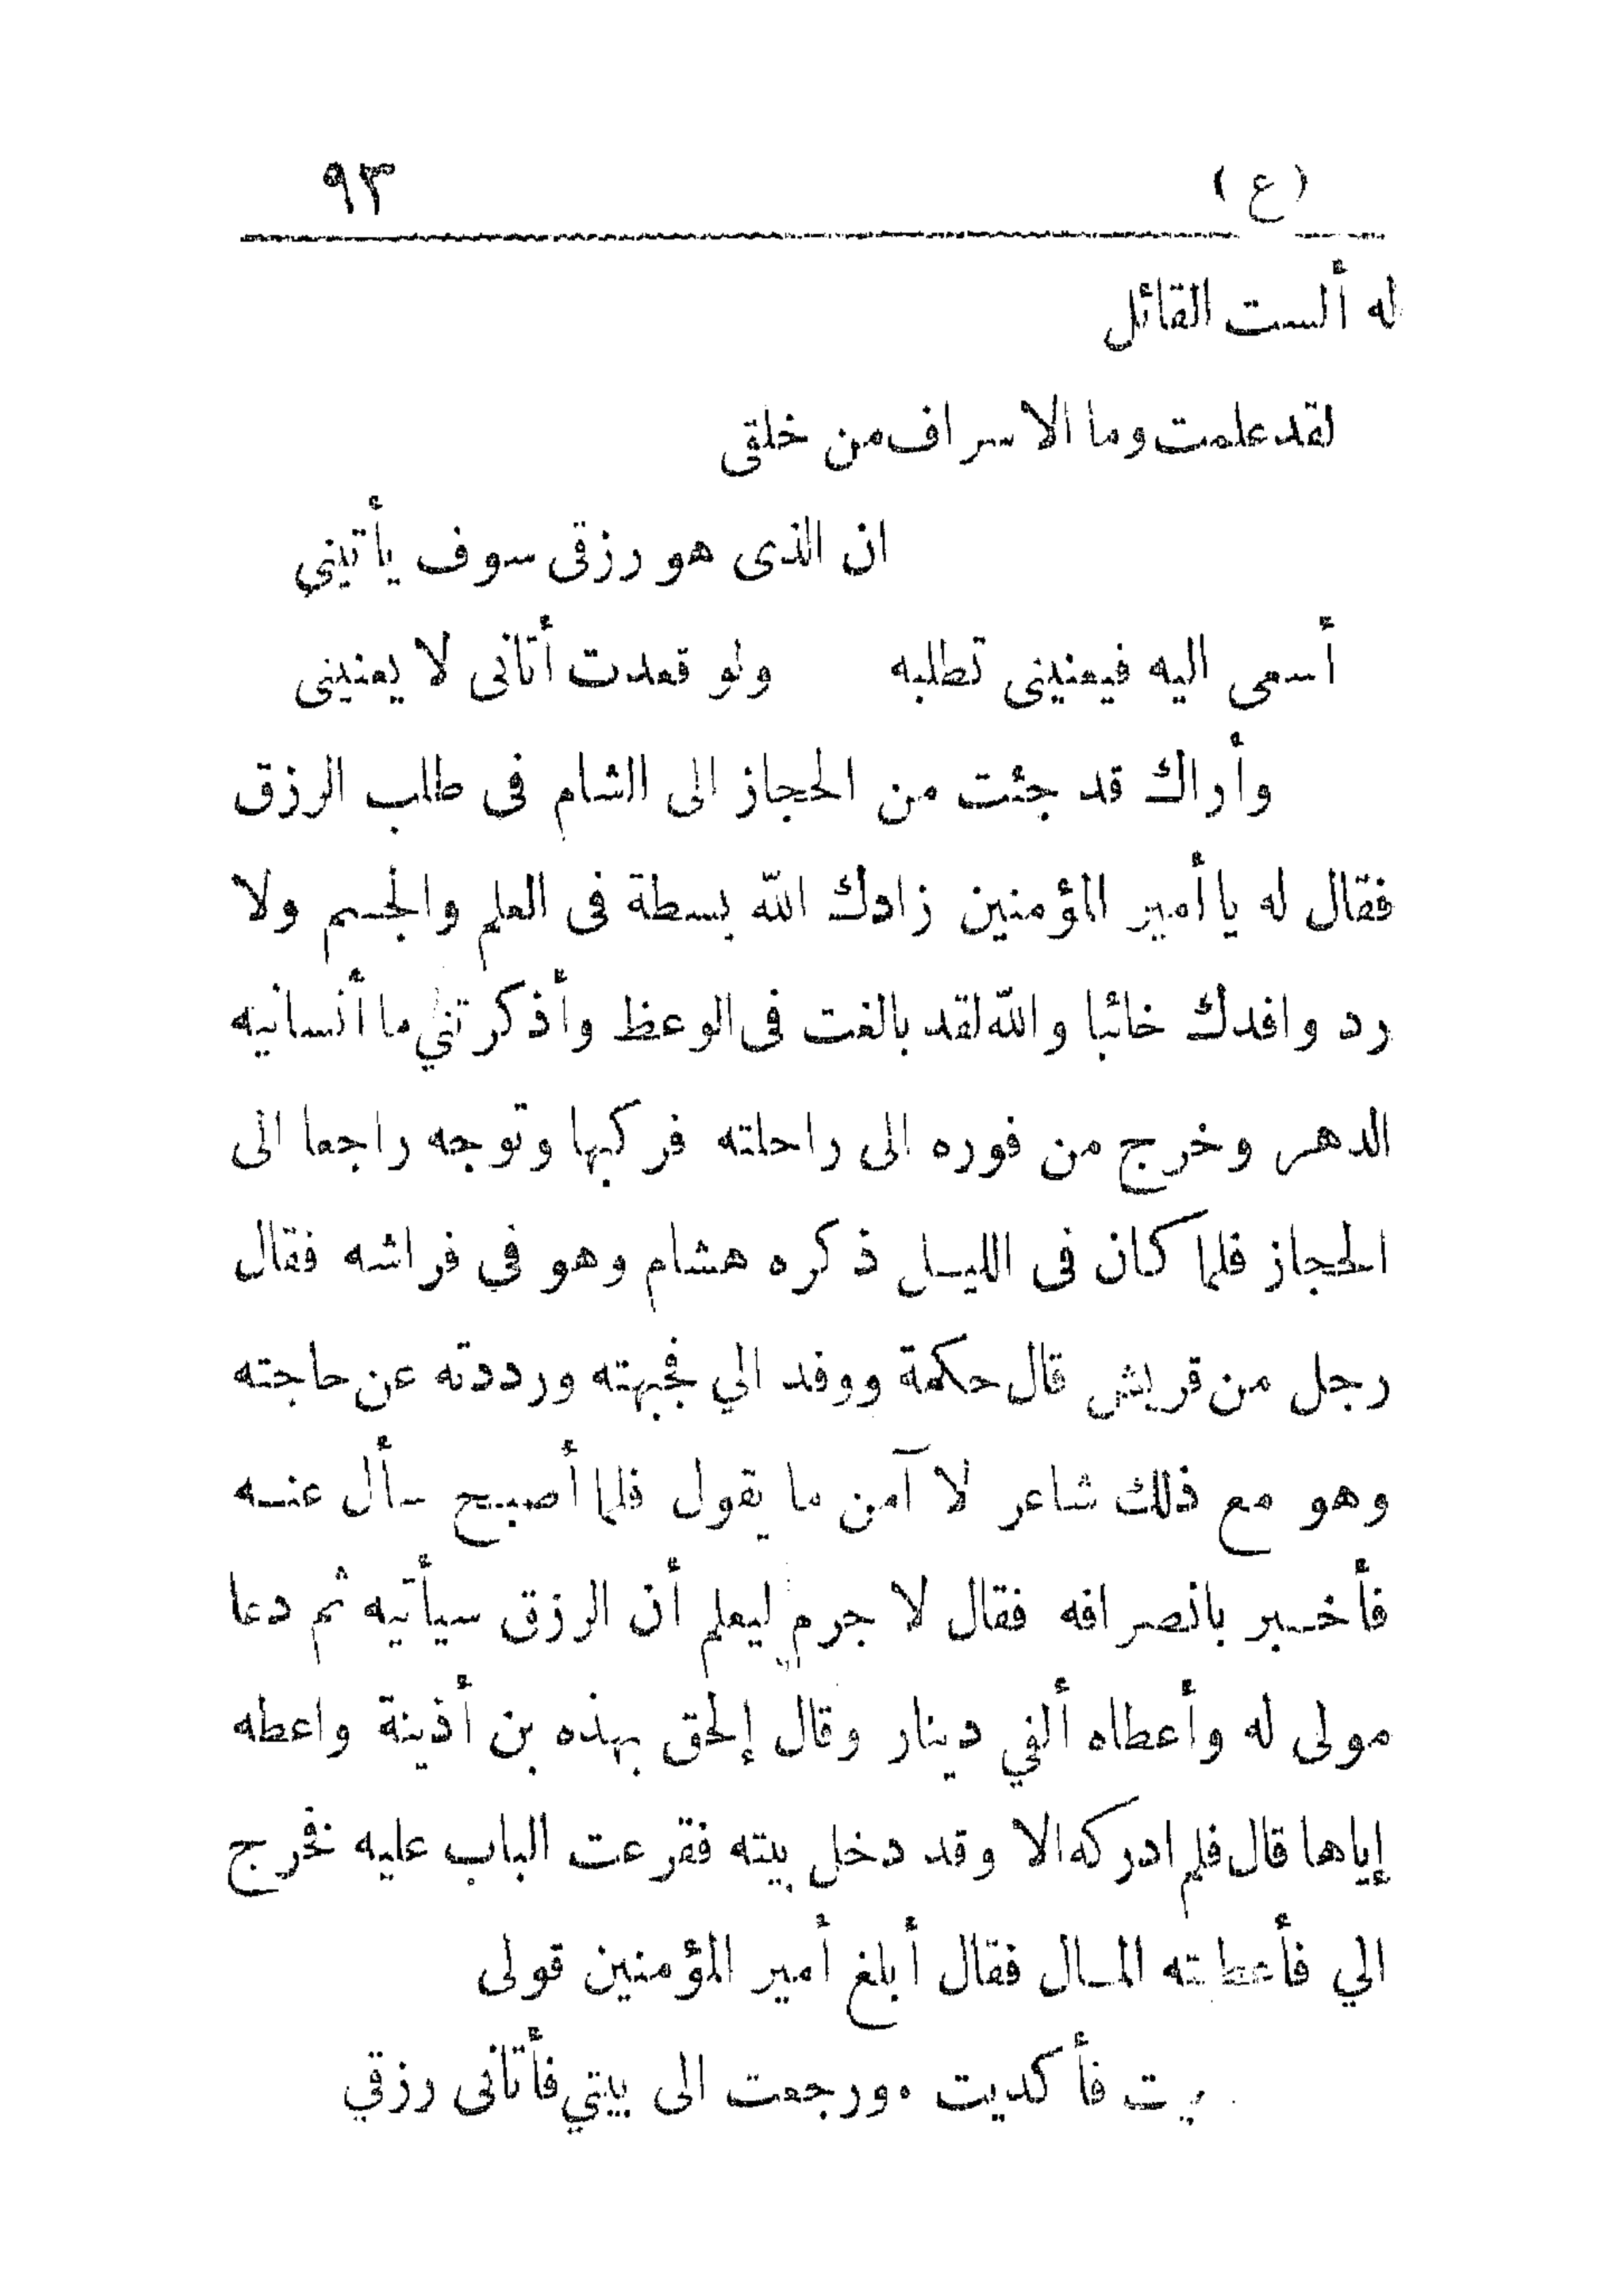 (ع) ٩٣
له ألست القائل
لقد علمت وما الاسراف من خلقى
ان الذى هو رزقى سوف يأتيني
أسعى اليه فيعنينى تطلبه ولو قعدت أتانى لا يعنينى
وأراك قد جئت من الحجاز الى الشام فى طلب الرزق
فقال له يا أمير المؤمنين زادك الله بسطة فى العلم والجسم ولا
رد وافدك خائبا والله لقد بالغت فى الوعظ وأذكرتني ما أنسانيه
الدهر وخرج من فوره الى راحلته فركبها وتوجه راجعا الى
الحجاز فلما كان فى الليل ذكره هشام وهو في فراشه فقال
رجل من قريش قال حكمة ووفد الي فجبهته ورددته عن حاجته
وهو مع ذلك شاعر لا آمن ما يقول فلما أصبح سأل عنه
فأخبر بانصرافه فقال لا جرم ليعلم أن الرزق سيأتيه ثم دعا
مولى له وأعطاه ألفي دينار وقال إلحق بهذه بن أذينة واعطه
إياها قال فلم ادركه الا وقد دخل بيته فقرعت الباب عليه فخرج
الي فأعطيته المال فقال أبلغ أمير المؤمنين قولى
فأكديت ٠ ورجعت الى بيتي فأتانى رزقي